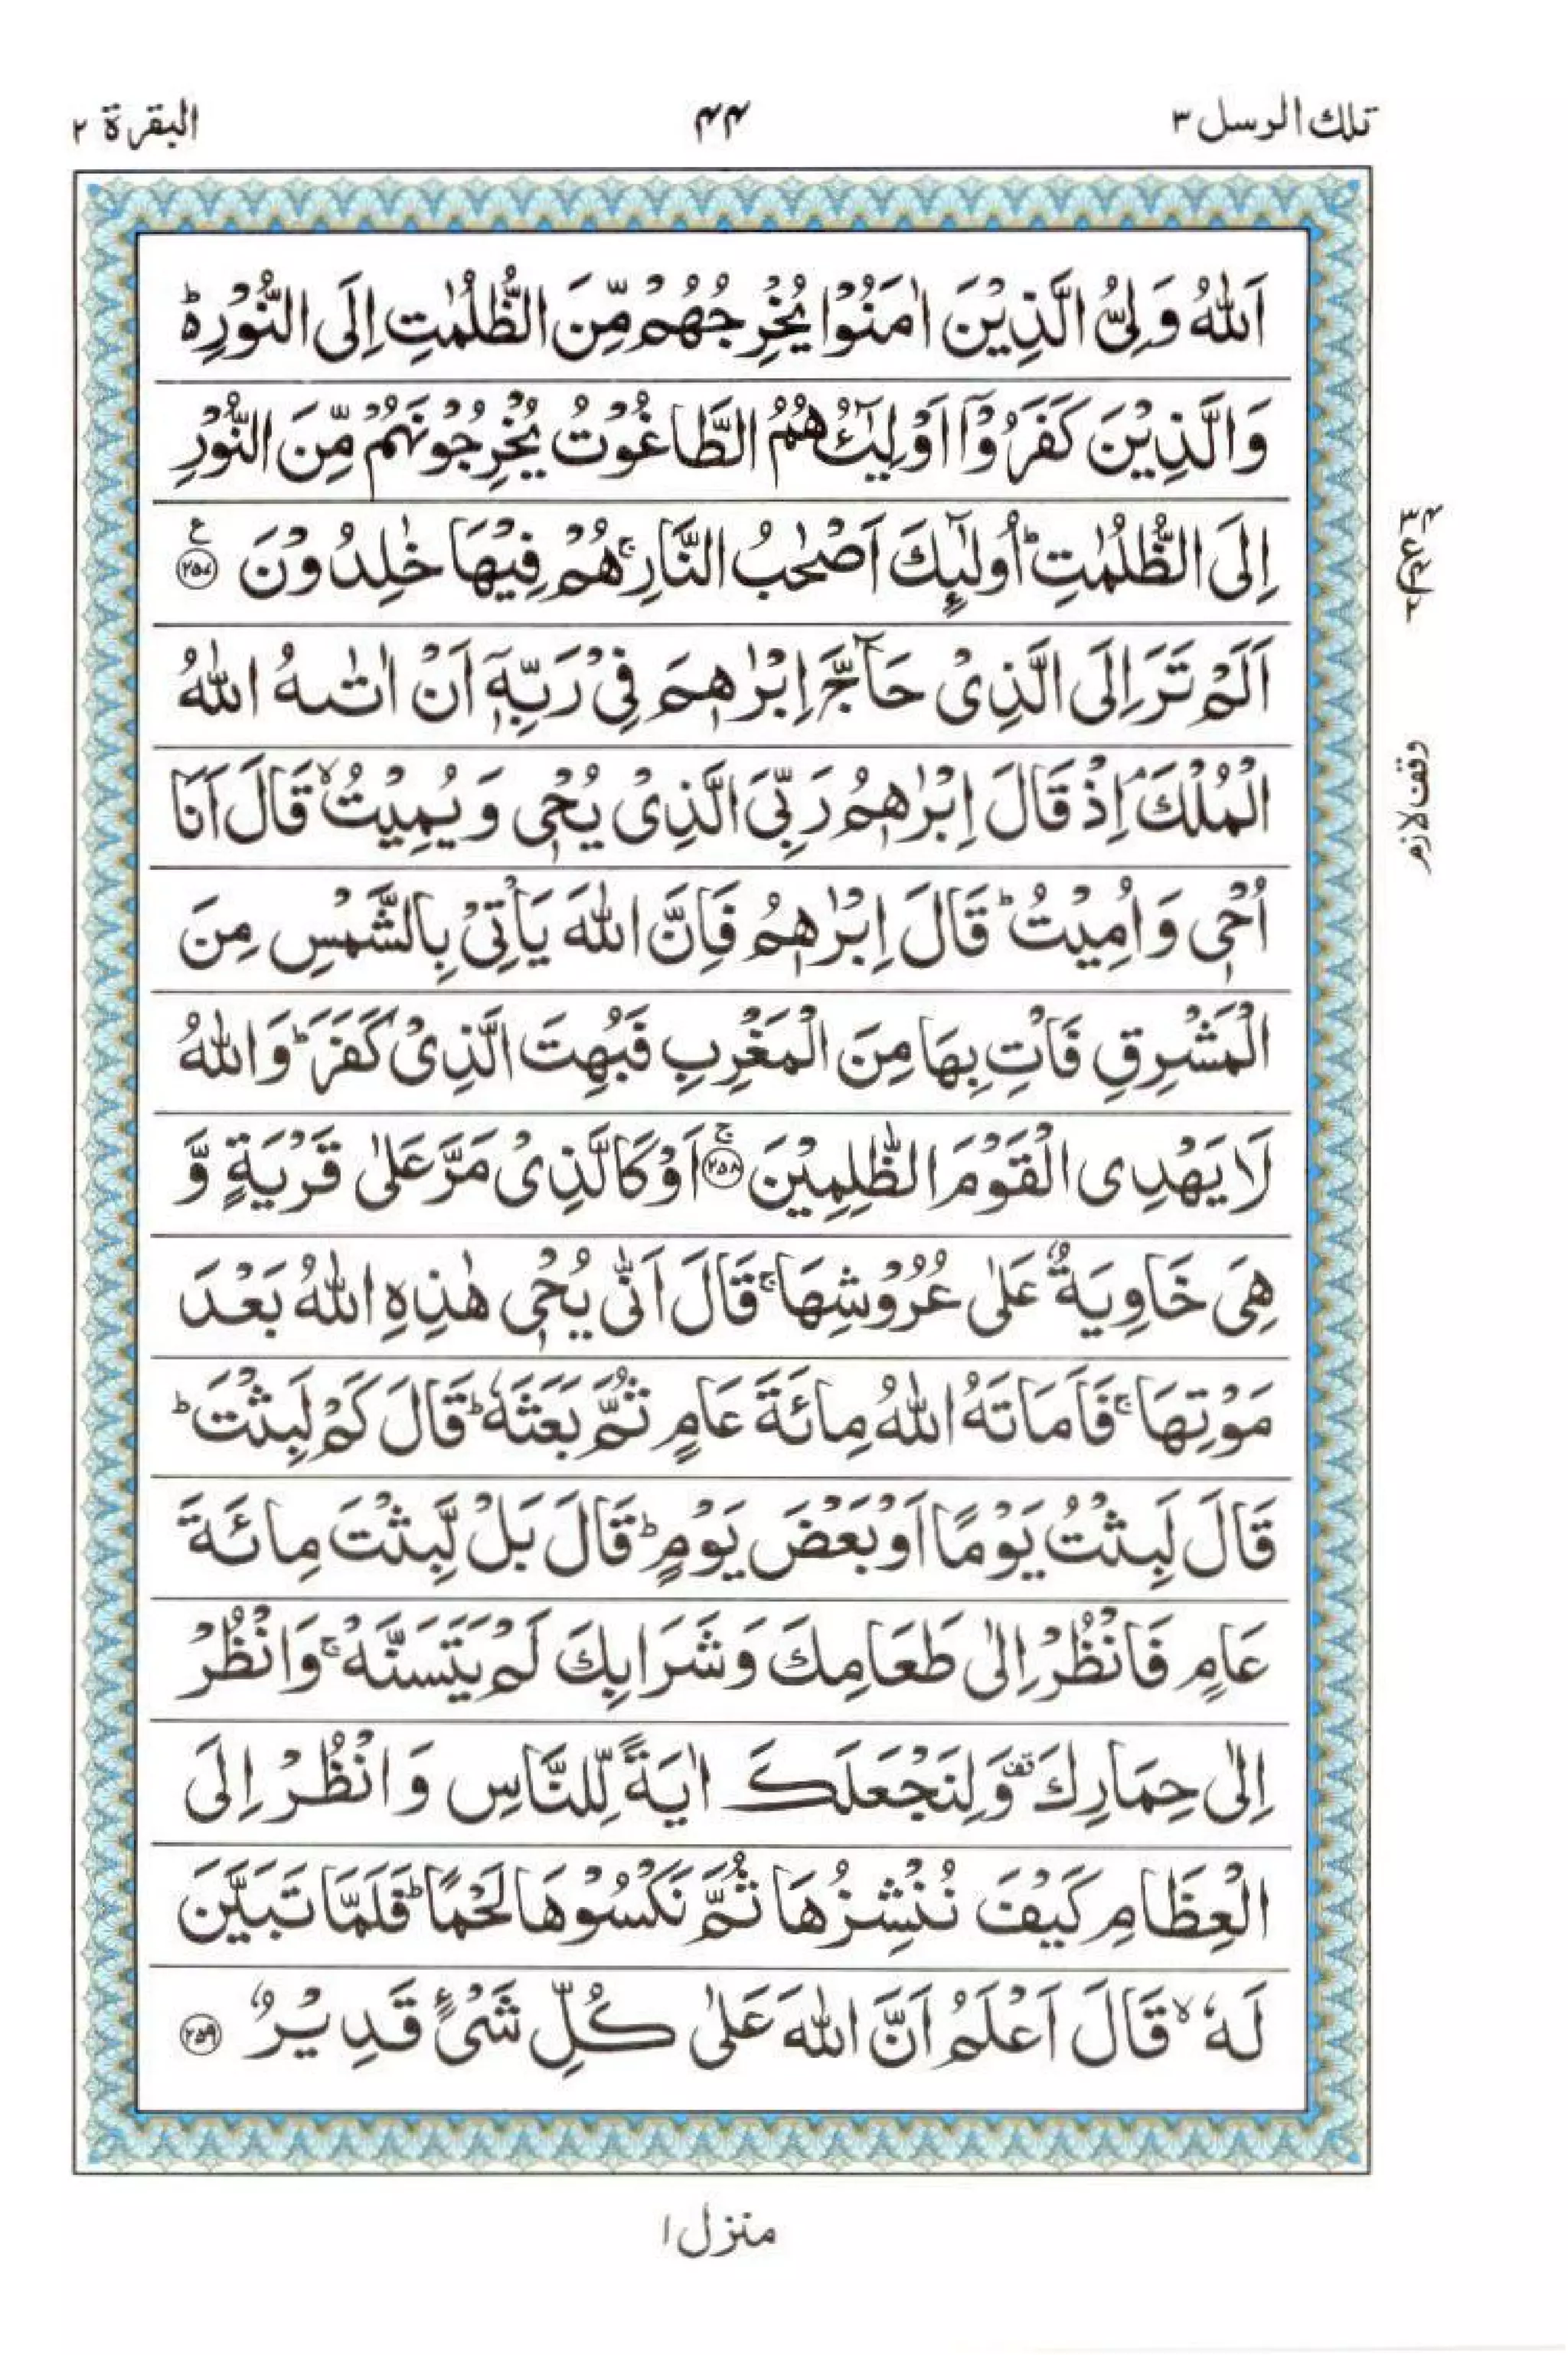 تلك الرسل ٣
۴۴
البقرة ٢
اَللّٰهُ وَلِیُّ الَّذِیْنَ اٰمَنُوْا یُخْرِجُهُمْ مِّنَ الظُّلُمٰتِ اِلَی النُّوْرِ۬ؕ
وَالَّذِیْنَ كَفَرُوْۤا اَوْلِیٰٓـُٔهُمُ الطَّاغُوْتُ یُخْرِجُوْنَهُمْ مِّنَ النُّوْرِ
اِلَی الظُّلُمٰتِؕ اُولٰٓىِٕكَ اَصْحٰبُ النَّارِۚ هُمْ فِیْهَا خٰلِدُوْنَ ۲۵۷ ع
اَلَمْ تَرَ اِلَی الَّذِیْ حَآجَّ اِبْرٰهٖمَ فِیْ رَبِّهٖۤ اَنْ اٰتٰىهُ اللّٰهُ
الْمُلْكَۘ اِذْ قَالَ اِبْرٰهٖمُ رَبِّیَ الَّذِیْ یُحْیٖ وَیُمِیْتُۙ قَالَ اَنَا
اُحْیٖ وَاُمِیْتُؕ قَالَ اِبْرٰهٖمُ فَاِنَّ اللّٰهَ یَاْتِیْ بِالشَّمْسِ مِنَ
الْمَشْرِقِ فَاْتِ بِهَا مِنَ الْمَغْرِبِ فَبُهِتَ الَّذِیْ كَفَرَؕ وَاللّٰهُ
لَا یَهْدِی الْقَوْمَ الظّٰلِمِیْنَۚ ۲۵۸ اَوْ كَالَّذِیْ مَرَّ عَلٰی قَرْیَةٍ وَّ
هِیَ خَاوِیَةٌ عَلٰی عُرُوْشِهَاۚ قَالَ اَنّٰی یُحْیٖ هٰذِهِ اللّٰهُ بَعْدَ
مَوْتِهَاۚ فَاَمَاتَهُ اللّٰهُ مِائَةَ عَامٍ ثُمَّ بَعَثَهٗؕ قَالَ كَمْ لَبِثْتَؕ
قَالَ لَبِثْتُ یَوْمًا اَوْ بَعْضَ یَوْمٍؕ قَالَ بَلْ لَّبِثْتَ مِائَةَ
عَامٍ فَانْظُرْ اِلٰی طَعَامِكَ وَشَرَابِكَ لَمْ یَتَسَنَّهْۚ وَانْظُرْ
اِلٰی حِمَارِكَ۫ وَلِنَجْعَلَكَ اٰیَةً لِّلنَّاسِ وَانْظُرْ اِلَی
الْعِظَامِ كَیْفَ نُنْشِزُهَا ثُمَّ نَكْسُوْهَا لَحْمًاؕ فَلَمَّا تَبَیَّنَ
لَهٗۙ قَالَ اَعْلَمُ اَنَّ اللّٰهَ عَلٰی كُلِّ شَیْءٍ قَدِیْرٌ ۲۵۹
وقف لازم
منزل ١